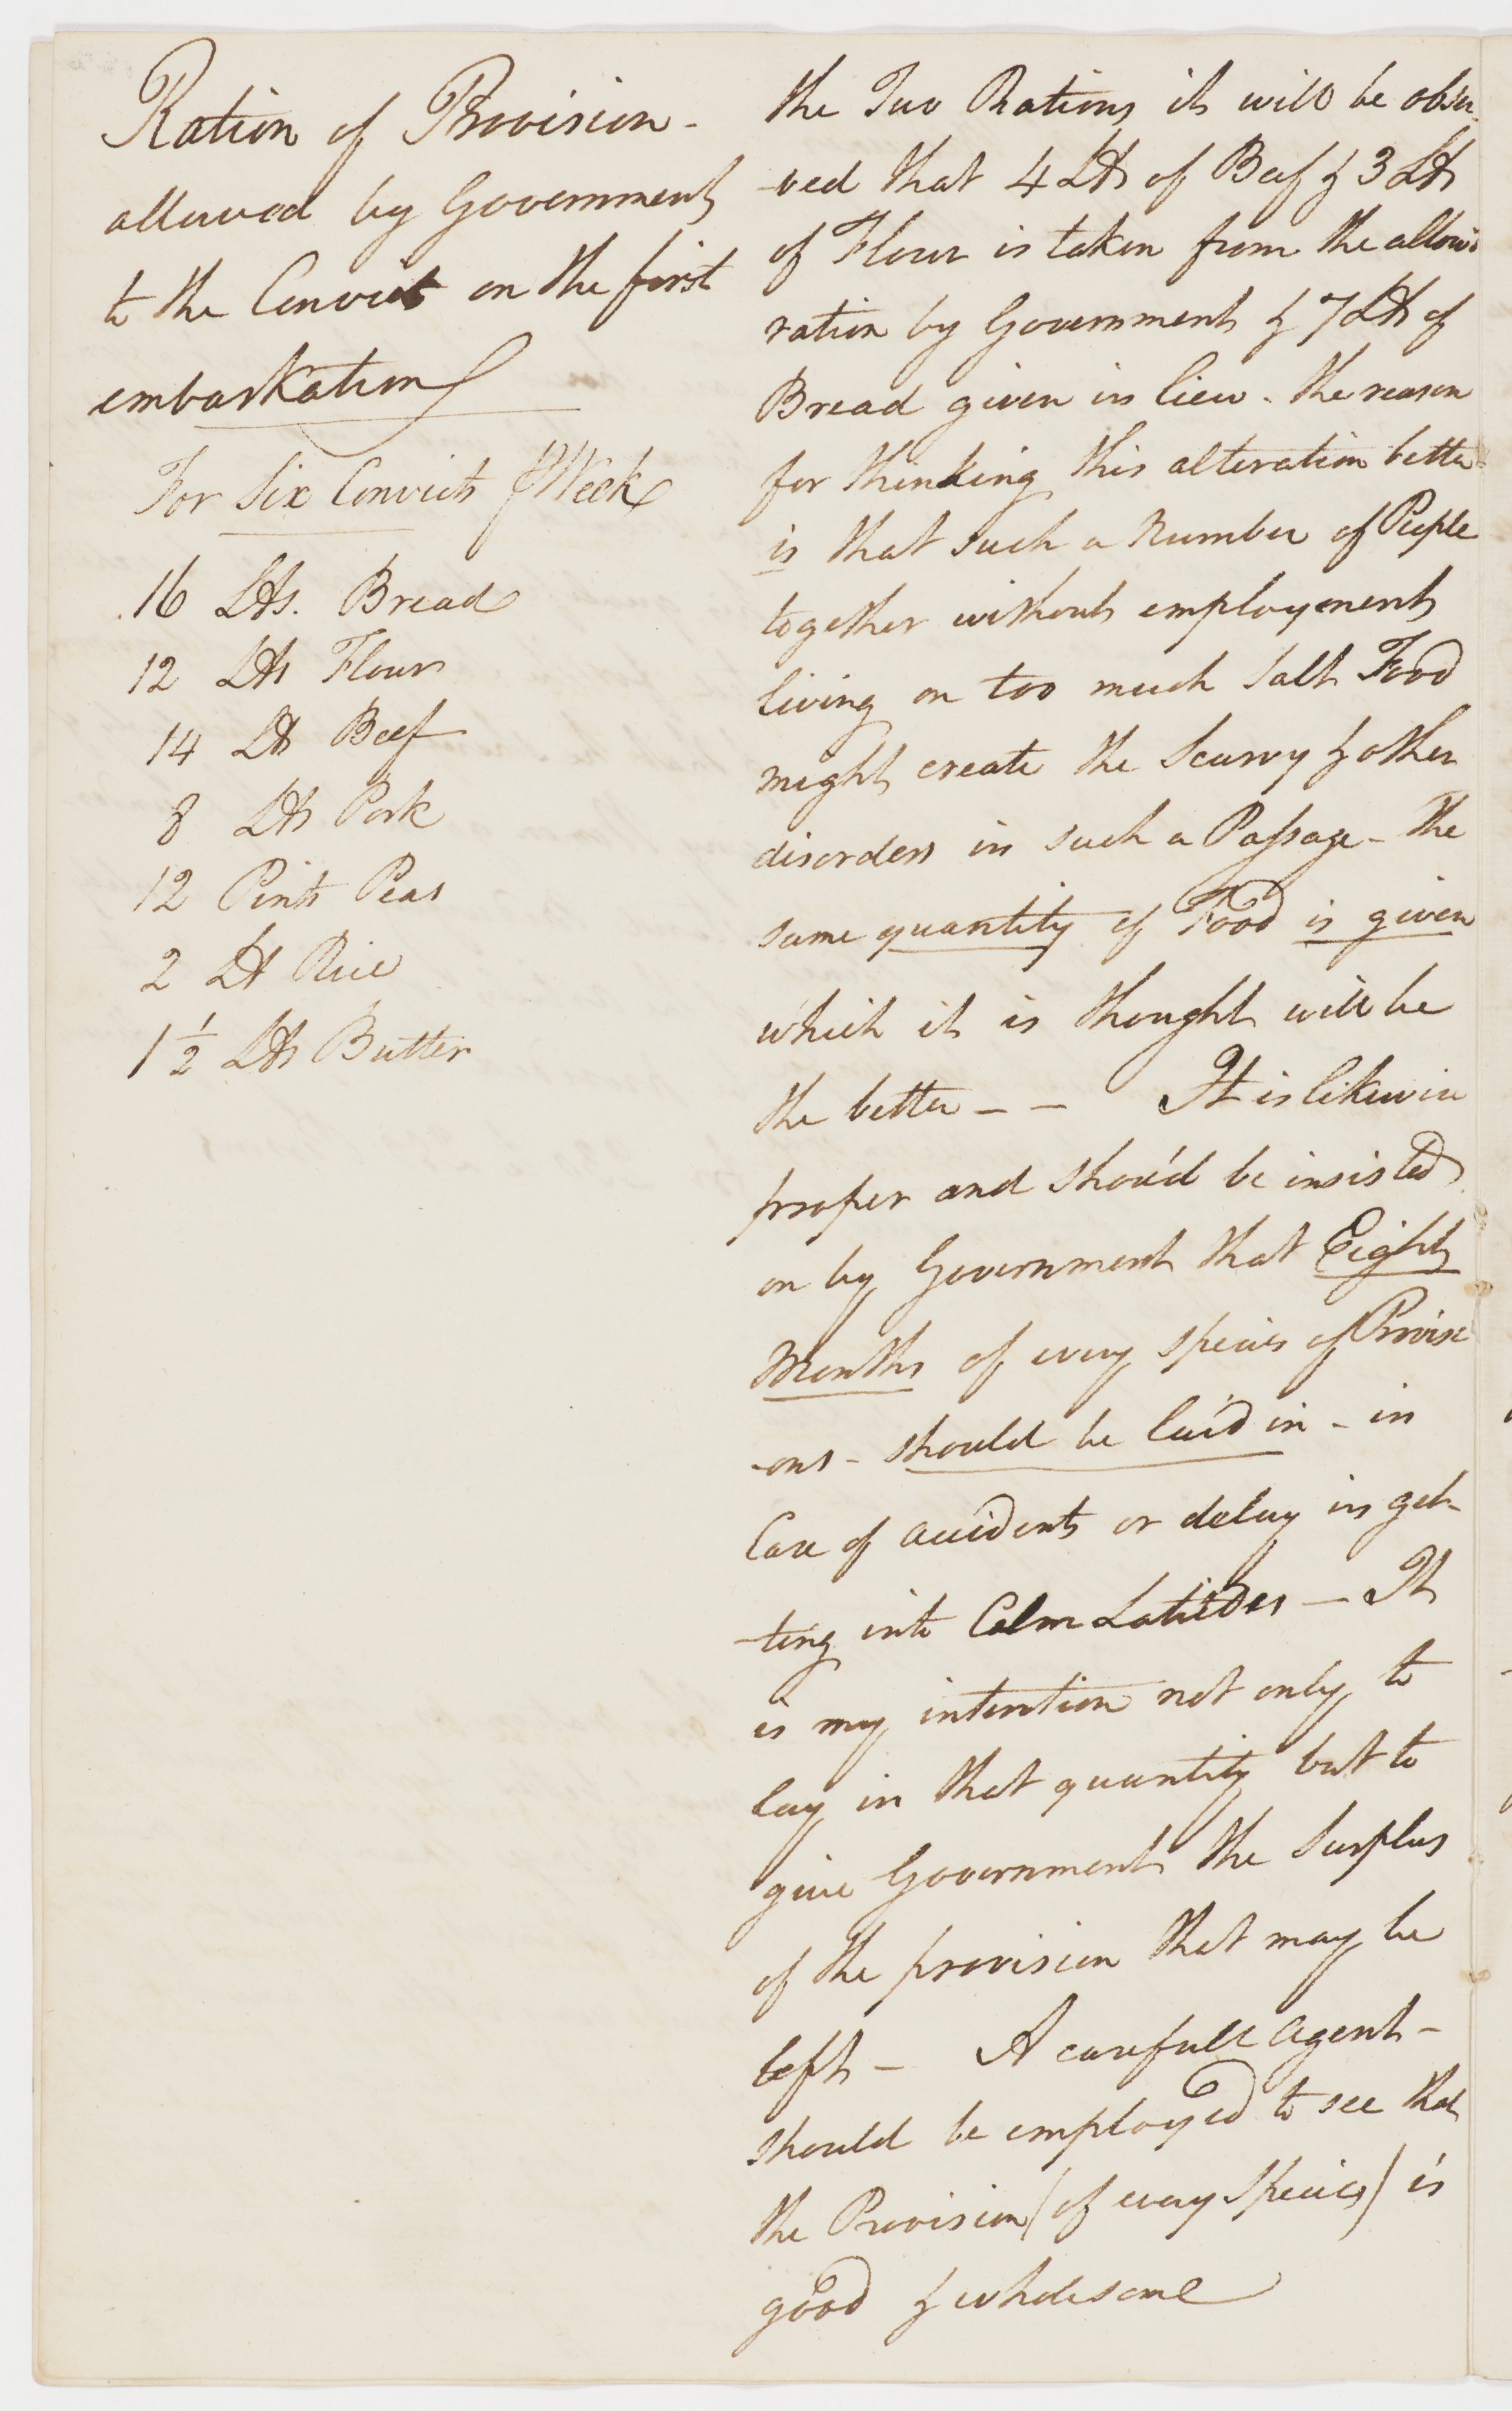 Ration of Provision -
allowed by Government
to the Convict on the first
embarkation
For Six Convicts ℔ Week
16 Lbs. Bread
12 Lbs Flour
14 Lb Beef
8 Lbs Pork
12 Pints Peas
2 Lb Rice
1 1/2 Lbs Butter
the Two Rations it will be obser
-ved that 4 Lbs of Beef & 3 Lbs
of Flour is taken from the allow'd
ration by Government & 7 Lbs of
Bread given in lieu - the reason
for thinking this alteration better
is that such a Number of People
together without employment
living on too much Salt Food
might create the Scurvy & other
disorders in such a Passage - The
same quantity of Food is given
which it is thought will be
the better - - It is likewise
proper and shou'd be insisted
on by Government that Eight
Months of every species of Provisi
-ons - should be laid in - in
Case of accidents or delay in get-
-ting into Calm Latitdes - It
is my intention not only to
lay in that quantity but to
give Government the Surplus
of the provision that may be
left - A carefull agent -
should be employed to see that
the Provision (of every species) is
good & wholesome